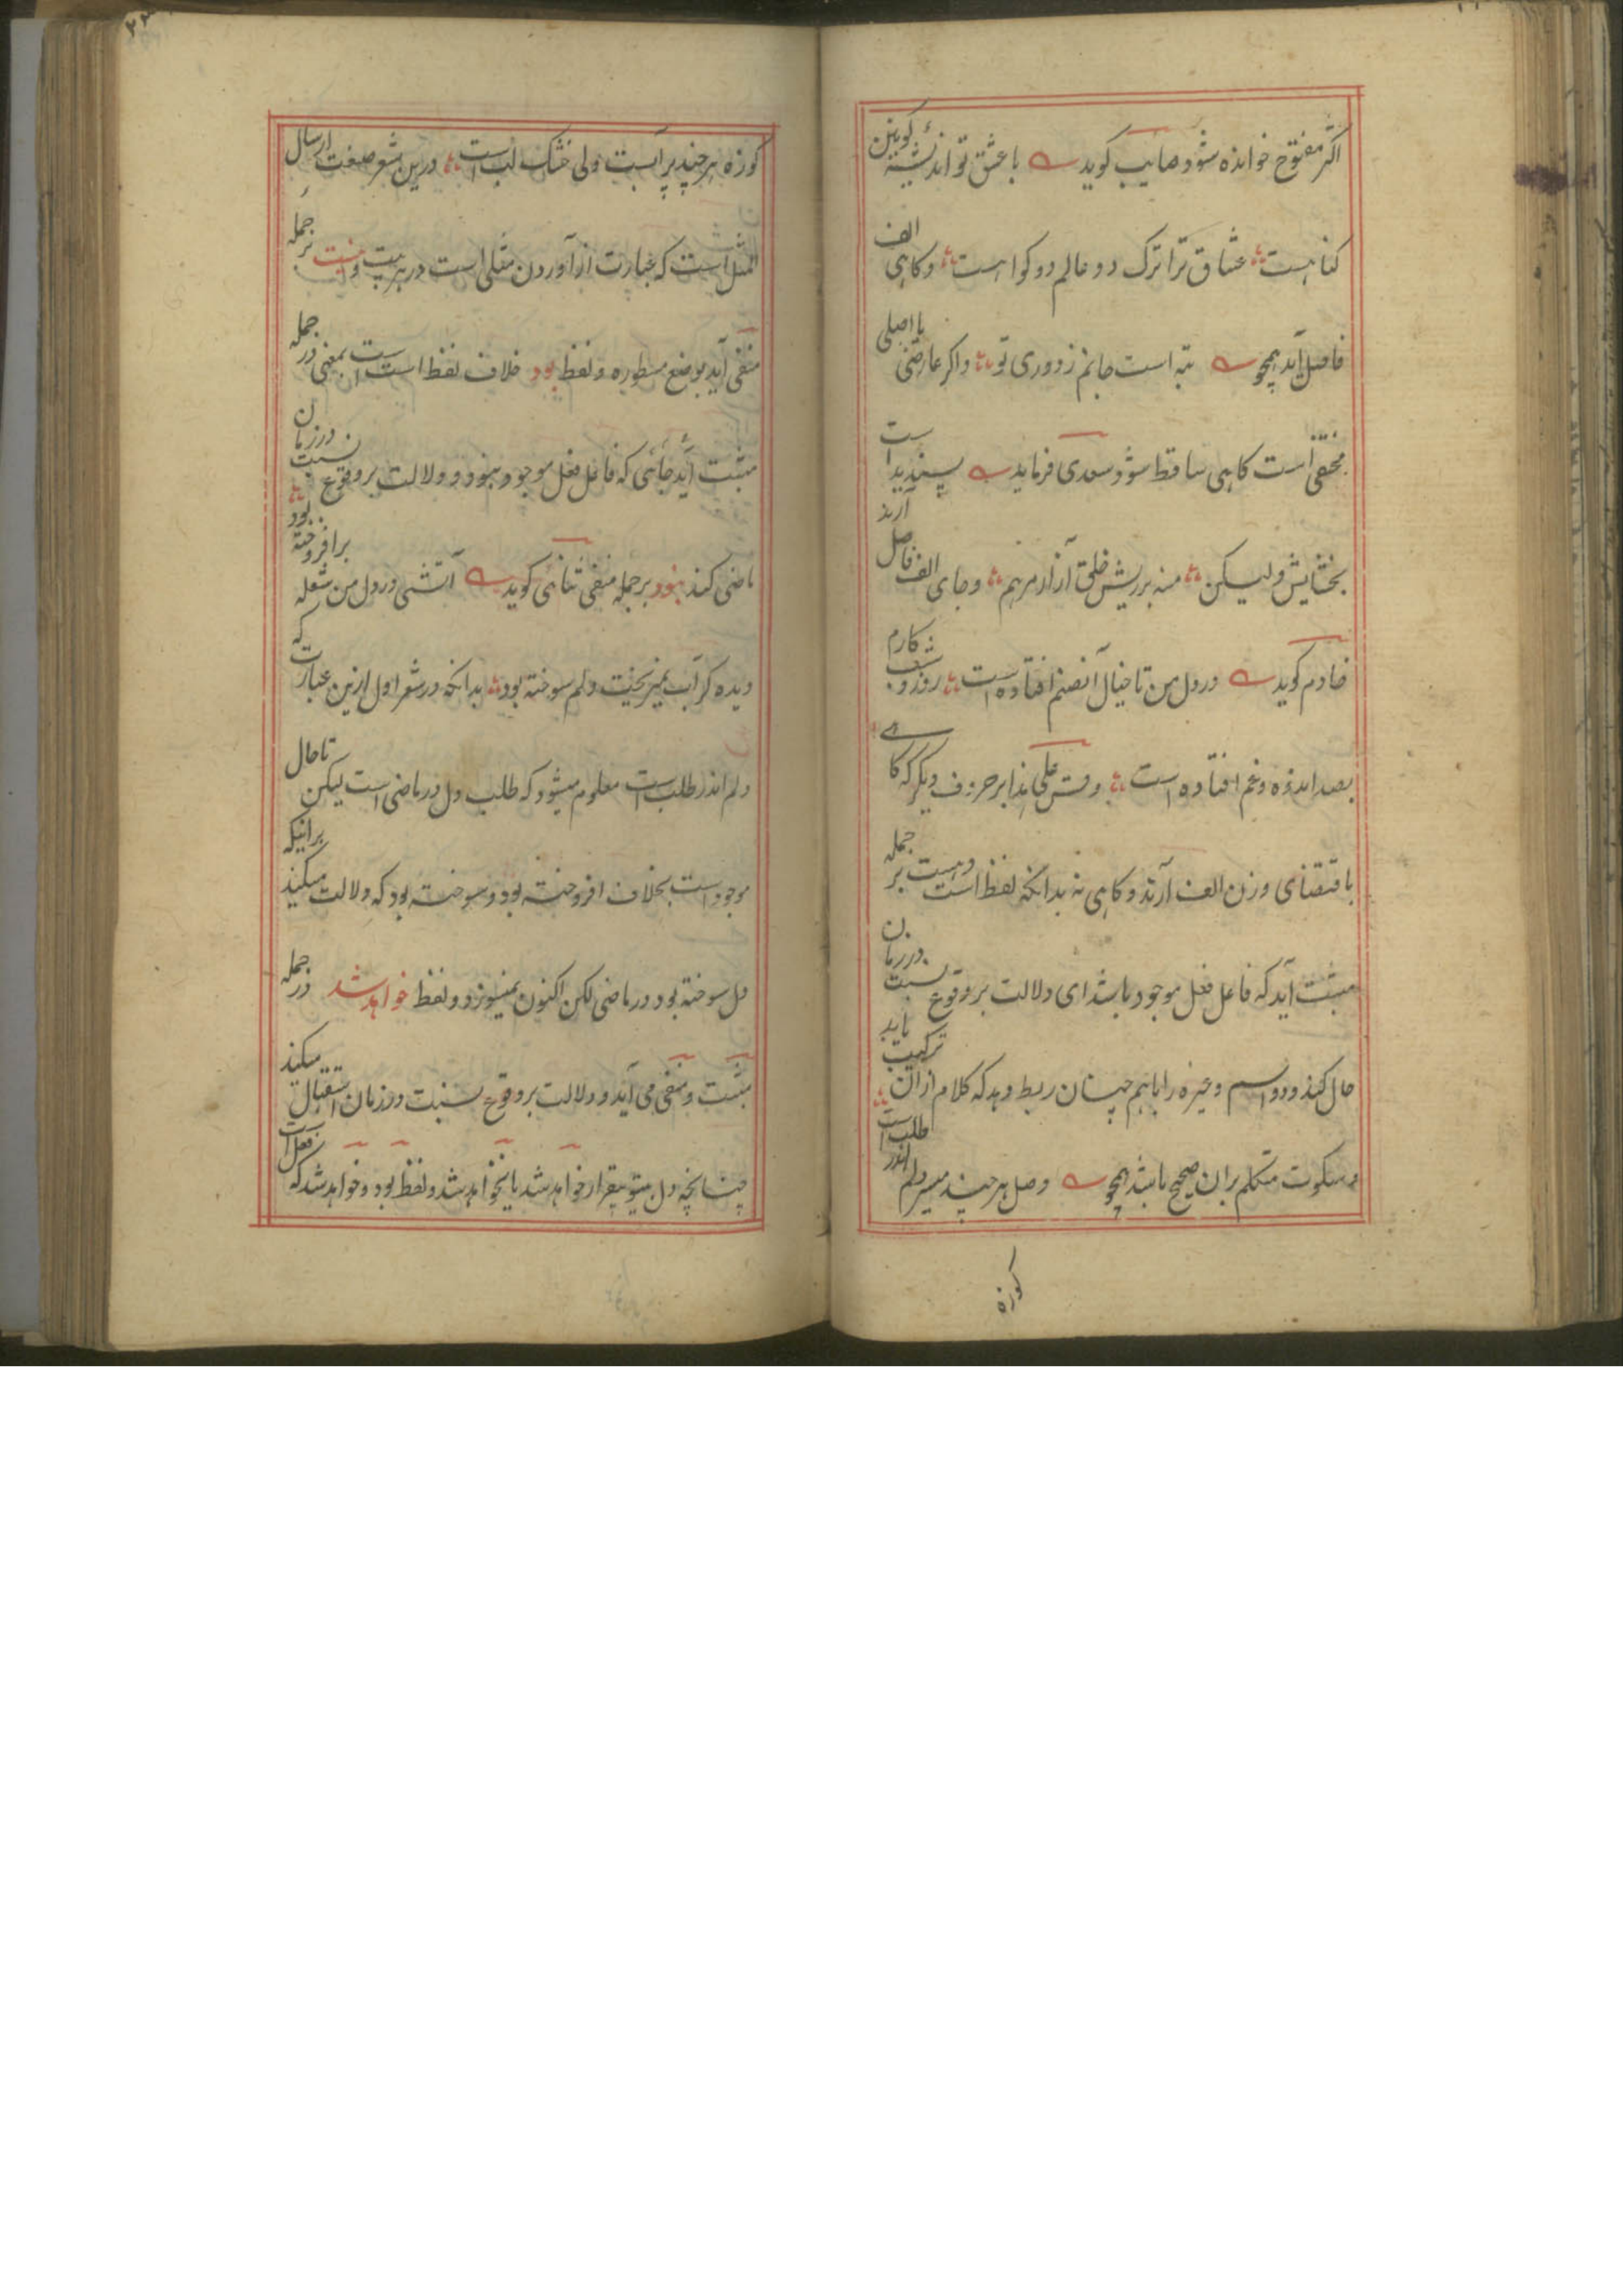 اکثر مفتوح خوانده شود صایب کوید با عشق تو اندیشهٔ کونین
کناهست عشاق ترا ترک دو عالم دو کواهست وکاهی الف
فاصل آید همچو تبه است جانم ز دوری تو واکر عارضی یا اصلی
مختفی است کاهی ساقط شود سعدی فرماید پسندیداست
بخشایش ولیکن منه بر ریش خلق آزار مرهم وجای الف فاصل آرند
خادم کوید در دل من تا خیال آنصنم افتاده است روز وشب کارم
بصد اندوه وغم افتاده است وقس علی هذا بر حروف دیکر که کاهی
باقتضای وزن الف آرند وکاهی نه بدانکه لفظ است وهست بر جمله
مثبت آید که فاعل فعل موجود باشد ای دلالت بر وقوع نسبت در زمان
حال کند ودو اسم وغیره را باهم چنان ربط دهد که کلام از آن ترکیب یابد
وسکوت متکلم بران صحیح باشد همچو وصل هر چند میسر دلم اندر طلب است
کوزه
کوزه هر چند پر آبست ولی خشک لب است درین شعر صنعت ارسال
المثل است که عبارت از آوردن مثلی است در هر بیت ونیست بر جمله
منفی آید بوضع مسطوره ولفظ بود خلاف لفظ است است بمعنی در جمله
مثبت آید جائی که فاعل فعل موجود نبود ودلالت بر وقوع نسبت در زمان
ماضی کند نبود بر جمله منفی ثنائی کوید آتشی در دل من شعله برافروخته بود
دیده کر آب نمیریخت دلم سوخته بود بدانکه در شعر اول ازین عبارت که
دلم اندر طلب است معلوم میشود که طلب دل در ماضی است لیکن تا حال
موجود است بخلاف افروخته بود وسوخته بود که دلالت میکند برانیکه
دل سوخته بود در ماضی لکن اکنون نمیسوزد ولفظ خواهد شد در جمله
مثبت ومنفی می آید ودلالت بر وقوع نسبت در زمان استقبال میکند
چنانچه دل بیتو بیقرار خواهد شد یا نخواهد شد ولفظ بود وخواهد شد که